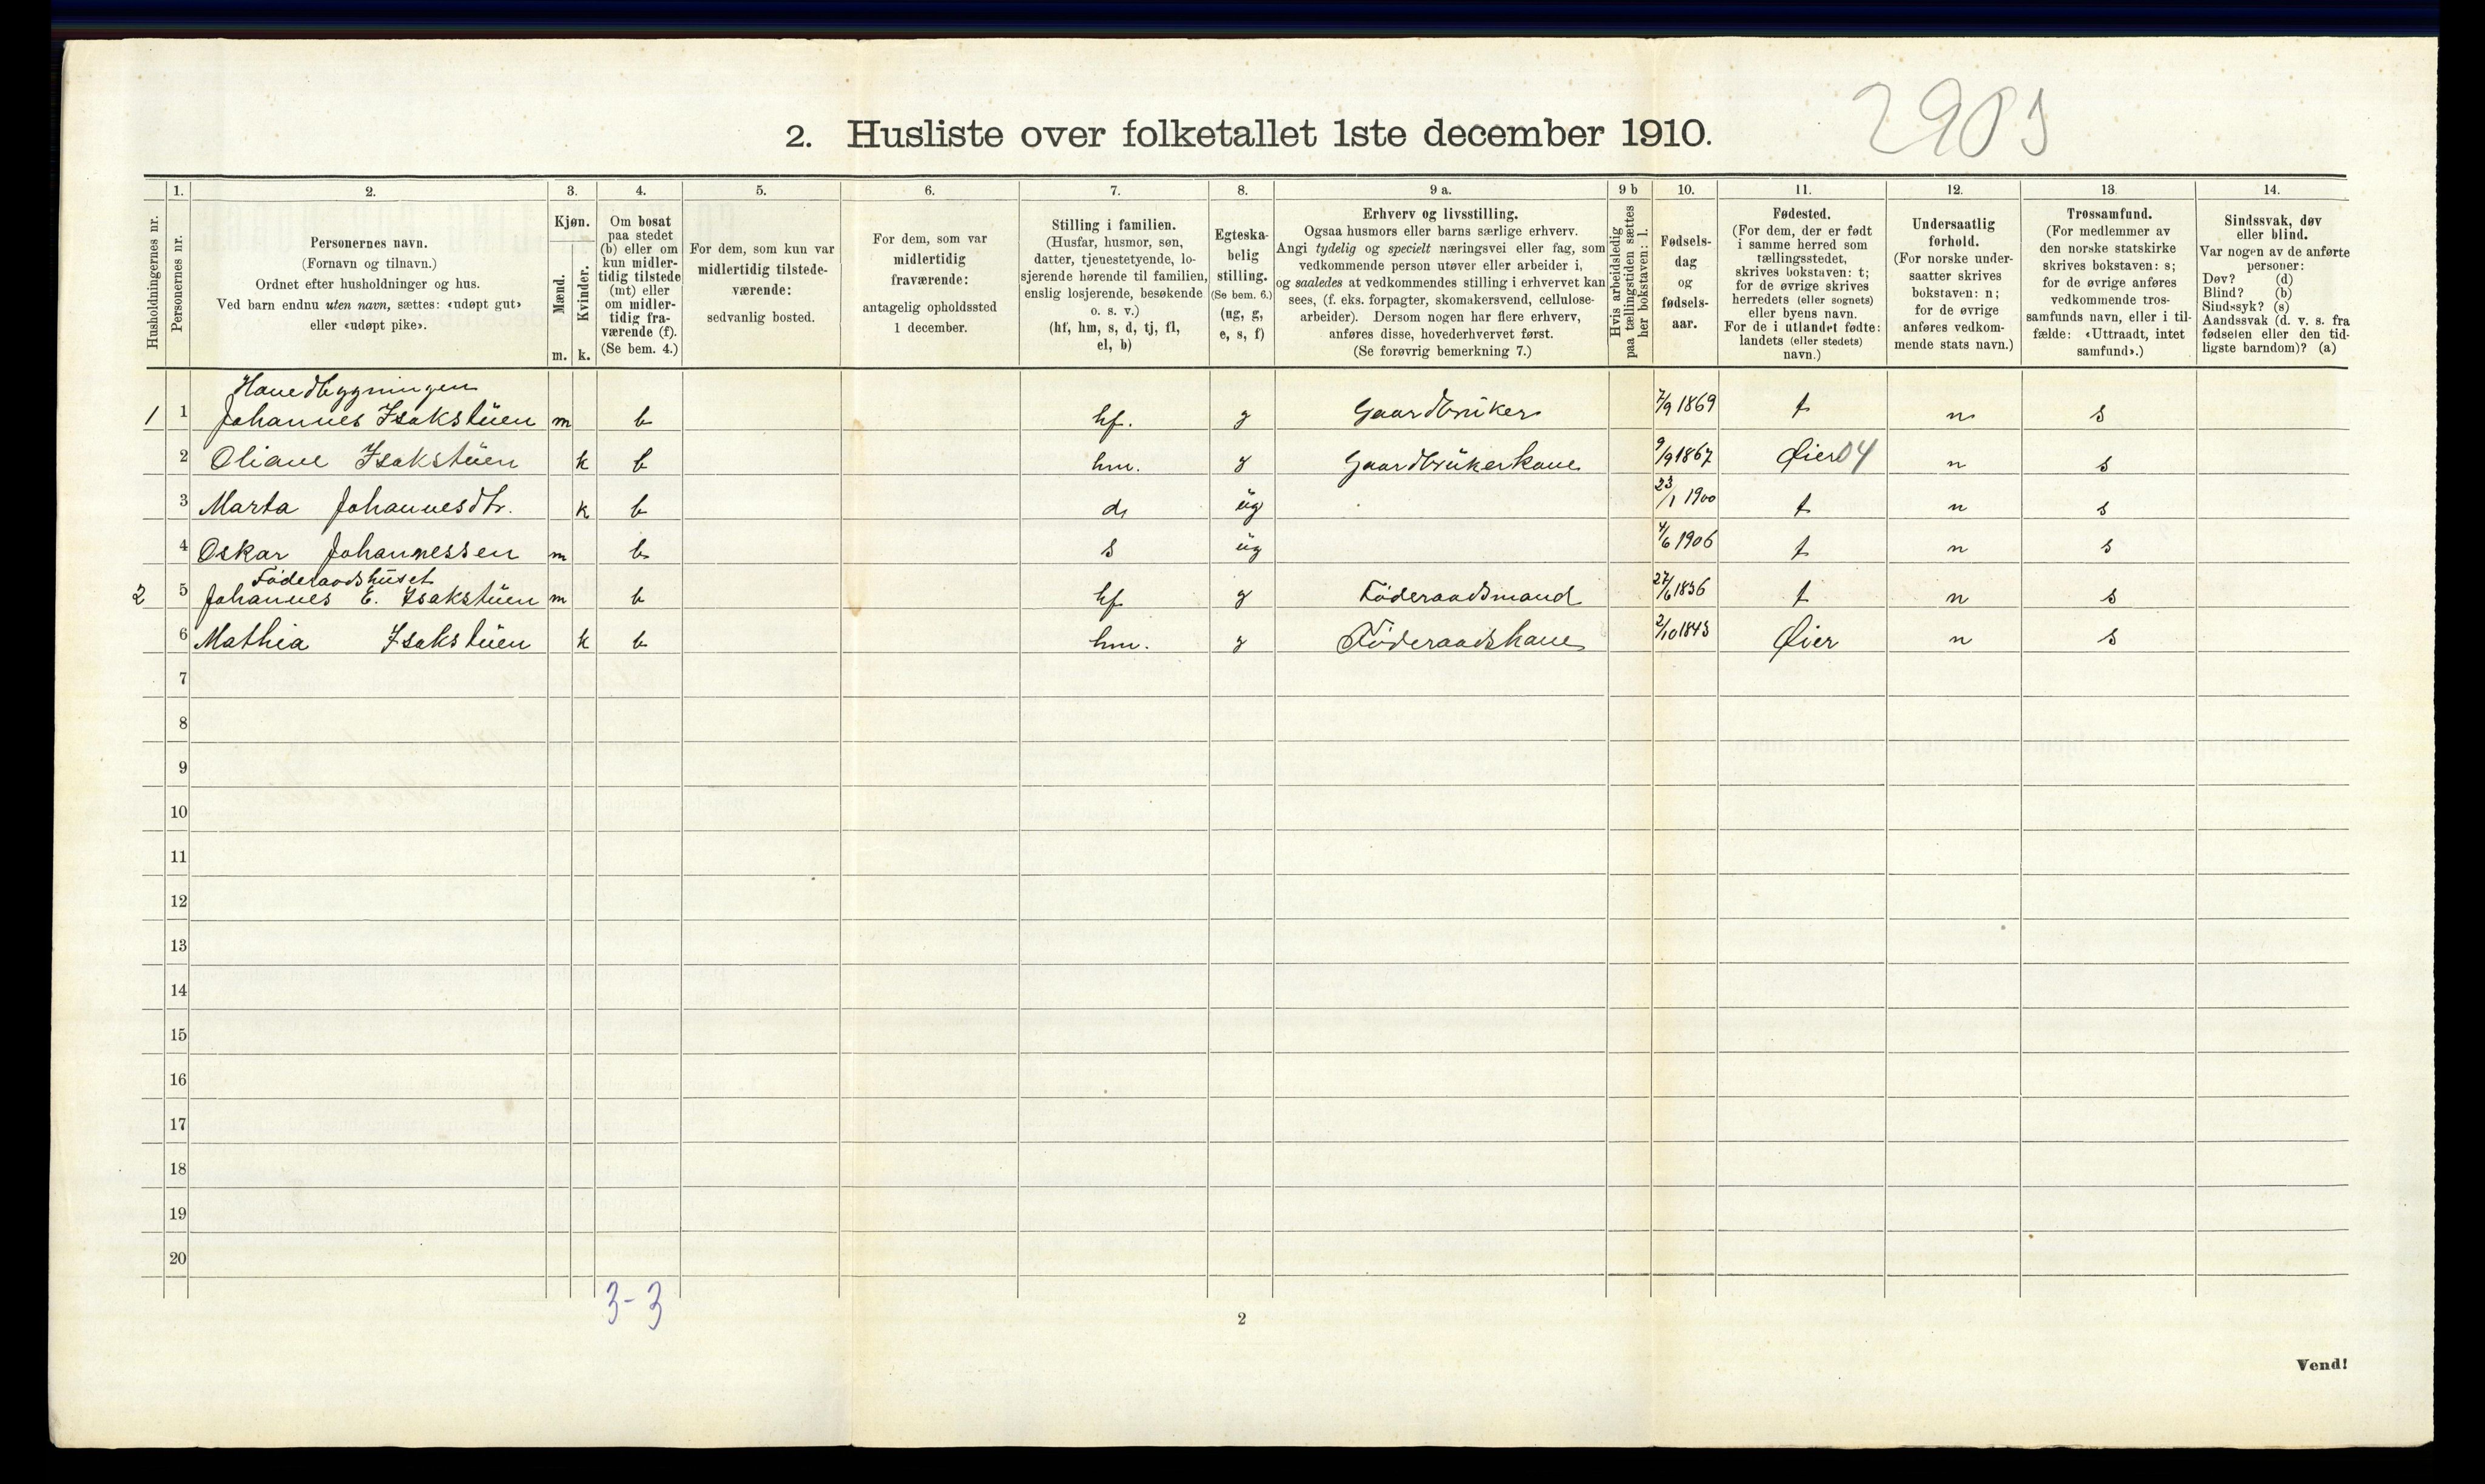 2905
2. Husliste over folketallet 1ste december 1910.
Husholdningernes nr.
1. Personernes nr.
2. Personernes navn. (Fornavn og tilnavn.) Ordnet efter husholdninger og hus. Ved barn endnu uten navn, sættes: «udøpt gut» eller «udøpt pike».
3. Kjøn. Mænd. m. Kvinder. k.
4. Om bosat paa stedet (b) eller om kun midlertidig tilstede (mt) eller om midlertidig fraværende (f). (Se bem. 4.)
5. For dem, som kun var midlertidig tilstedeværende: sedvanlig bosted.
6. For dem, som var midlertidig fraværende: antagelig opholdssted 1 december.
7. Stilling i familien. (Husfar, husmor, søn, datter, tjenestetyende, losjerende hørende til familien, enslig losjerende, besøkende o. s. v.) (hf, hm, s, d, tj, fl, el, b)
8. Egteskabelig stilling. (Se bem. 6.) (ug, g, e, s, f)
9 a. Erhverv og livsstilling. Ogsaa husmors eller barns særlige erhverv. Angi tydelig og specielt næringsvei eller fag, som vedkommende person utøver eller arbeider i, og saaledes at vedkommendes stilling i erhvervet kan sees, (f. eks. forpagter, skomakersvend, cellulosearbeider). Dersom nogen har flere erhverv, anføres disse, hovederhvervet først. (Se forøvrig bemerkning 7.)
9 b Hvis arbeidsledig paa tællingstiden sættes her bokstaven: l.
10. Fødselsdag og fødselsaar.
11. Fødested. (For dem, der er født i samme herred som tællingsstedet, skrives bokstaven: t; for de øvrige skrives herredets (eller sognets) eller byens navn. For de i utlandet fødte: landets (eller stedets) navn.)
12. Undersaatlig forhold. (For norske undersaatter skrives bokstaven: n; for de øvrige anføres vedkommende stats navn.)
13. Trossamfund. (For medlemmer av den norske statskirke skrives bokstaven: s; for de øvrige anføres vedkommende trossamfunds navn, eller i tilfælde: «Uttraadt, intet samfund».)
14. Sindssvak, døv eller blind. Var nogen av de anførte personer: Døv? (d) Blind? (b) Sindssyk? (s) Aandssvak (d. v. s. fra fødselen eller den tidligste barndom)? (a)
Hovedbygningen
1 1 Johannes Isakstuen m b hf. g Gaardbruker 7/9 1869 t n s
2 Oliane Isakstuen k b hm. g Gaardbrukerkone 9/9 1867 Øier 04 n s
3 Marta Johannesdtr. k b d ug 23/1 1900 t n s
4 Oskar Johannessen m b s ug 4/6 1906 t n s
Föderaadshuset
2 5 Johannes E. Isakstuen m b hf g Föderaadsmand 27/6 1836 t n s
6 Mathia Isakstuen k b hm. g Föderaadskone 2/10 1843 Øier n s
7
8
9
10
11
12
13
14
15
16
17
18
19
20
3-3
2
Vend!